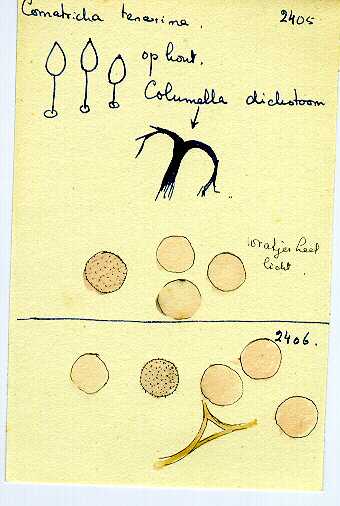 Comatricha tenerima. 2405
op hout.
Columella dichotoom
wratjes heel
licht.
2406.